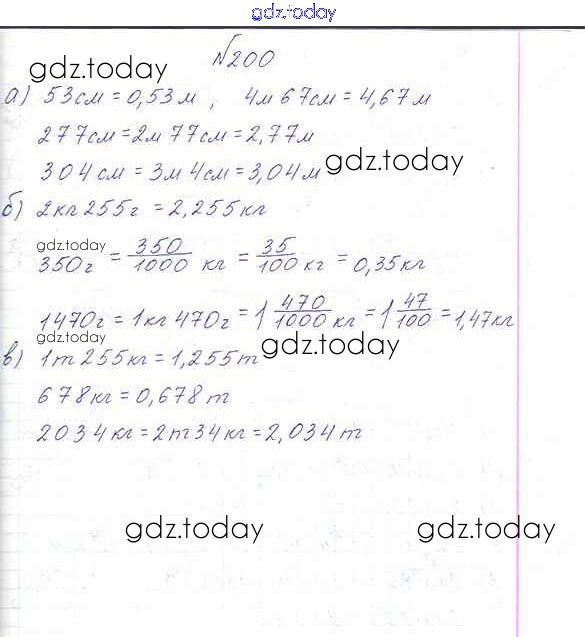 gdz.today
№200
gdz.today
а) 53см = 0,53м , 4м 67см = 4,67м
277см = 2м 77см = 2,77м
304см = 3м 4см = 3,04м gdz.today
б) 2кг 255г = 2,255кг
gdz.today
350г = 350/1000 кг = 35/100 кг = 0,35кг
1470г = 1кг 470г = 1 470/1000 кг = 1 47/100 = 1,47кг
gdz.today gdz.today
в) 1т 255кг = 1,255т
678кг = 0,678т
2034кг = 2т 34кг = 2,034т
gdz.today gdz.today